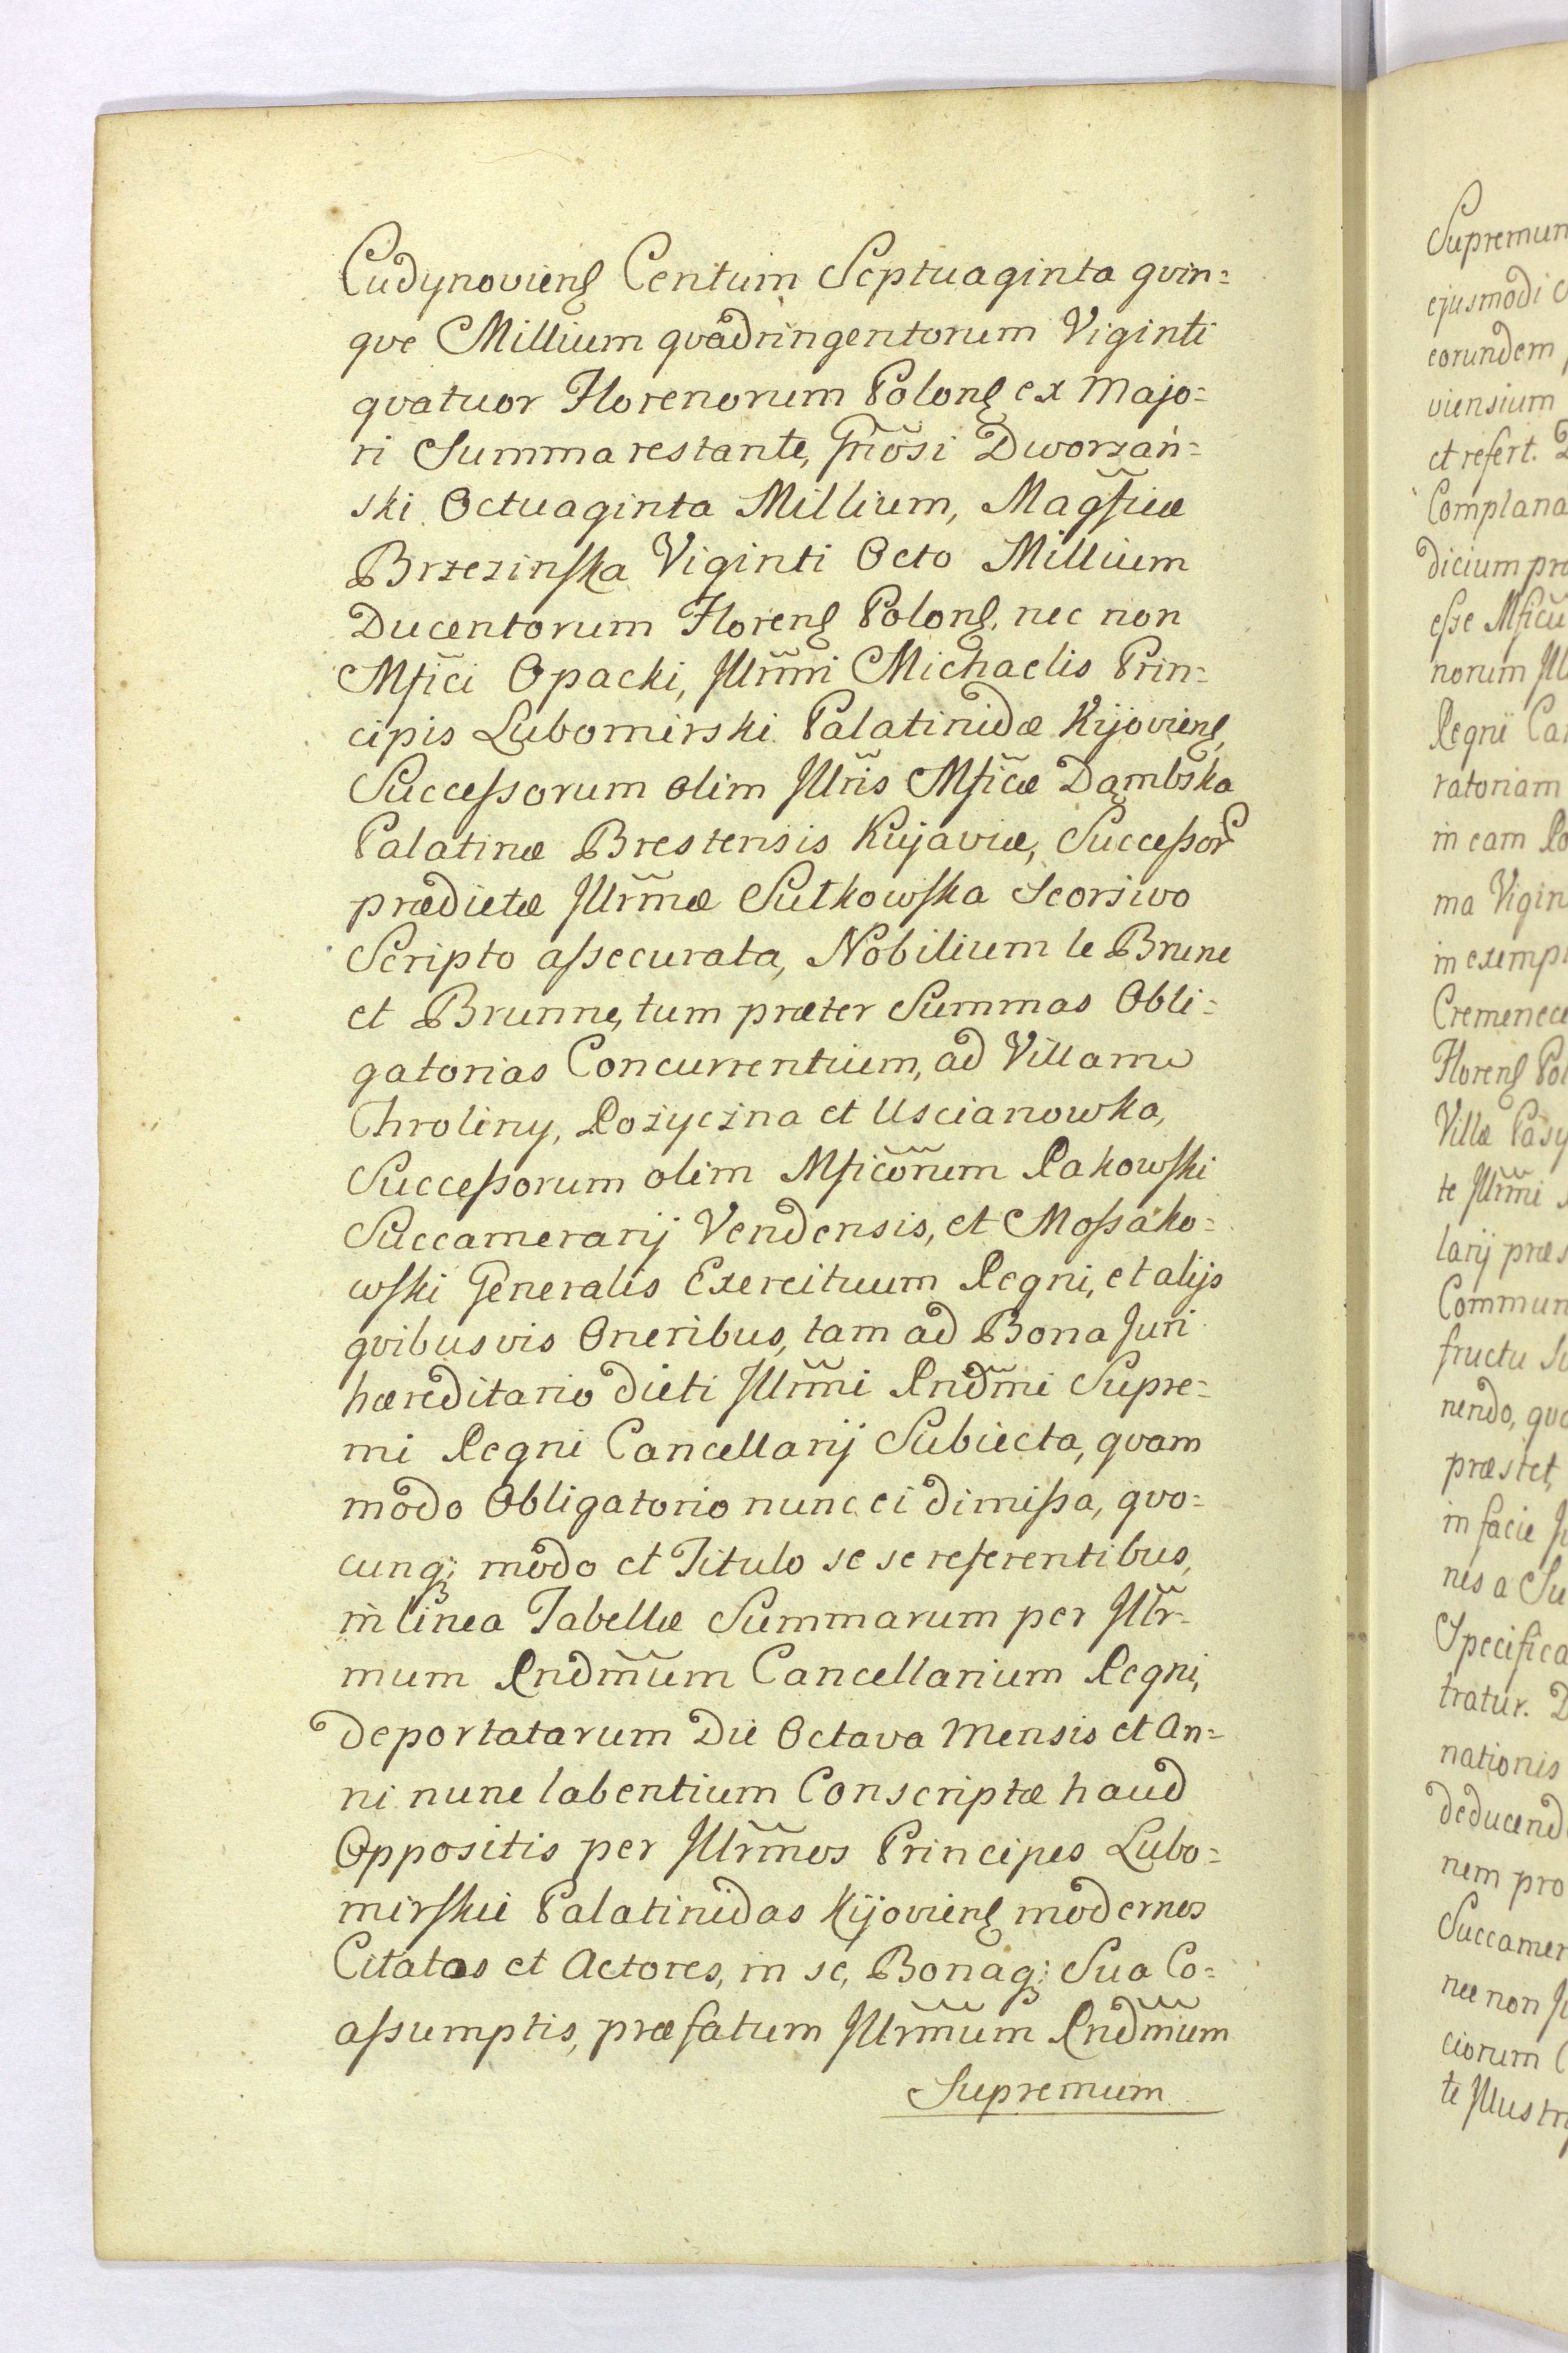 Cudynoviens Centum Septuaginta qvin=
qve Millium qvadringentorum Viginti
qvatuor Florenorum Polons ex Majo=
ri Summa restante, Gñosi Dworzań=
ski Octuaginta Millium, Magficæ
Brzezinska Viginti Octo Millium
Ducentorum Florens Polons. nec non
Mfici Opacki, Illrmi Michaelis Prin=
cipis Lubomirski Palatinidæ Kijoviens,
Successorum olim Illris Mficæ Dąmbska
Palatinæ Brestensis Kujaviæ, Successor
prædictæ Illrmæ Sulkowska Seorsivo
Scripto assecurata, Nobilium le Brune
et Brunne, tum præter Summas Obli=
gatorias Concurrentium, ad Villam
Chroliny, Rozyczna et Uscianowka,
Successorum olim Mficorum Rakowski
Succamerarij Vendensis, et Mossako=
wski Generalis Exercituum Regni, et alijs
qvibusvis Oneribus, tam ad Bona Juri
hæreditario dicti Illrmi Rndmi Supre=
mi Regni Cancellarij Subiecta, qvam
modo Obligatorio nunc ei dimissa, qvo=
cunq; modo et Titulo se se referentibus,
in linea Tabellæ Summarum per Illr=
mum Rndmum Cancellarium Regni,
deportatarum Die Octava Mensis et An=
ni nunc labentium Conscriptæ haud
Oppositis per Illrmos Principes Lubo=
mirskie Palatinidas Kijoviens modernos
Citatos et Actores, in se, Bonaq; Sua Co=
assumptis, præfatum Illrmum Rndmum
Supremum
Supremum
ejusmodi
eorundem
viensium
et refert.
Complana
dicium pro
esse Mficu
norum Ill
Regni Can
ratoriam
in eam
ma Vigin
in exemp
Cremenece
Florens Pol
Villæ
te Illrmi
larij præs
Commun
fructu
nendo, qvo
præstet,
in facie
nes a Su
Specifica
tratur.
nationis
deducend
nem pro
Succamer
nec non
ciorum
te Illustr